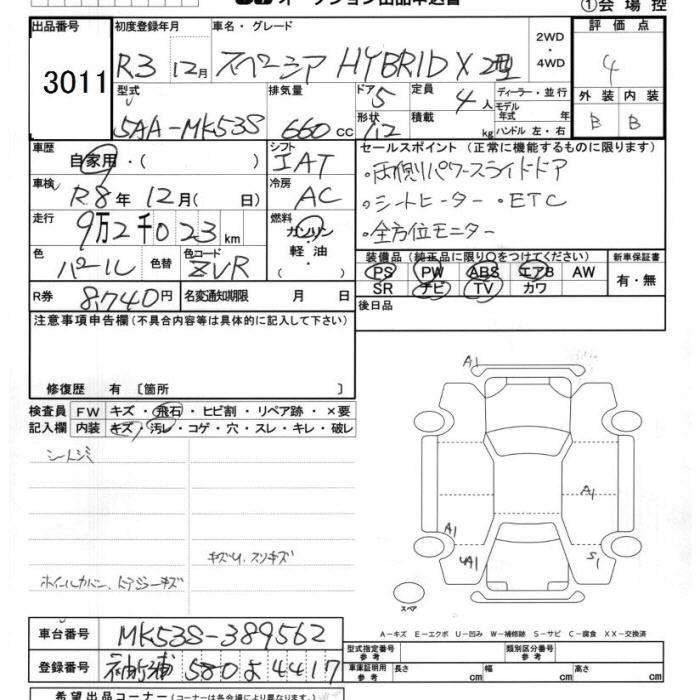 オークション出品申込書
①会場控
出品番号 初度登録年月 車名・グレード 2WD・4WD 評価点
3011 R3 12月 スペーシア HYBRID X 2型 4
型式 排気量 ドア 5 定員 4人 ディーラー・並行 外装 内装
5AA-MK53S 660cc 形状 /12 積載 kg モデル年式 年 ハンドル 左・右 B B
車歴 自家用・( ) シフト IAT セールスポイント (正常に機能するものに限ります)
・両側パワースライドドア
車検 R8年12月( 日) 冷房 AC ・シートヒーター・ETC
走行 9万2千023km 燃料 ガソリン・軽油・( ) ・全方位モニター
色 パール 色替 色コード ZVR 装備品 (純正品に限り○をつけてください) 新車保証書
PS PW ABS エアB AW 有・無
SR ナビ TV カワ
R券 8740円 名変通知期限 月 日 後日品
注意事項申告欄 (不具合内容等は具体的に記入して下さい)
修復歴 有 〔箇所 〕
検査員 FW キズ・飛石・ヒビ割・リペア跡・×要
記入欄 内装 キズ・汚レ・コゲ・穴・スレ・キレ・破レ
シートシミ
キズU、スリキズ
ホイールカバー、ドアミラーキズ
A1
A1
A1
4A1 S1
スペア
A-キズ E-エクボ U-凹み W-補修跡 S-サビ C-腐食 XX-交換済
車台番号 MK53S-389562 型式指定番号 参考 類別区分番号 参考
登録番号 袖ヶ浦 580 よ 4417 車庫証明用 参考 長さ cm 幅 cm 高さ cm
希望出品コーナー (コーナーは各会場により異なります)